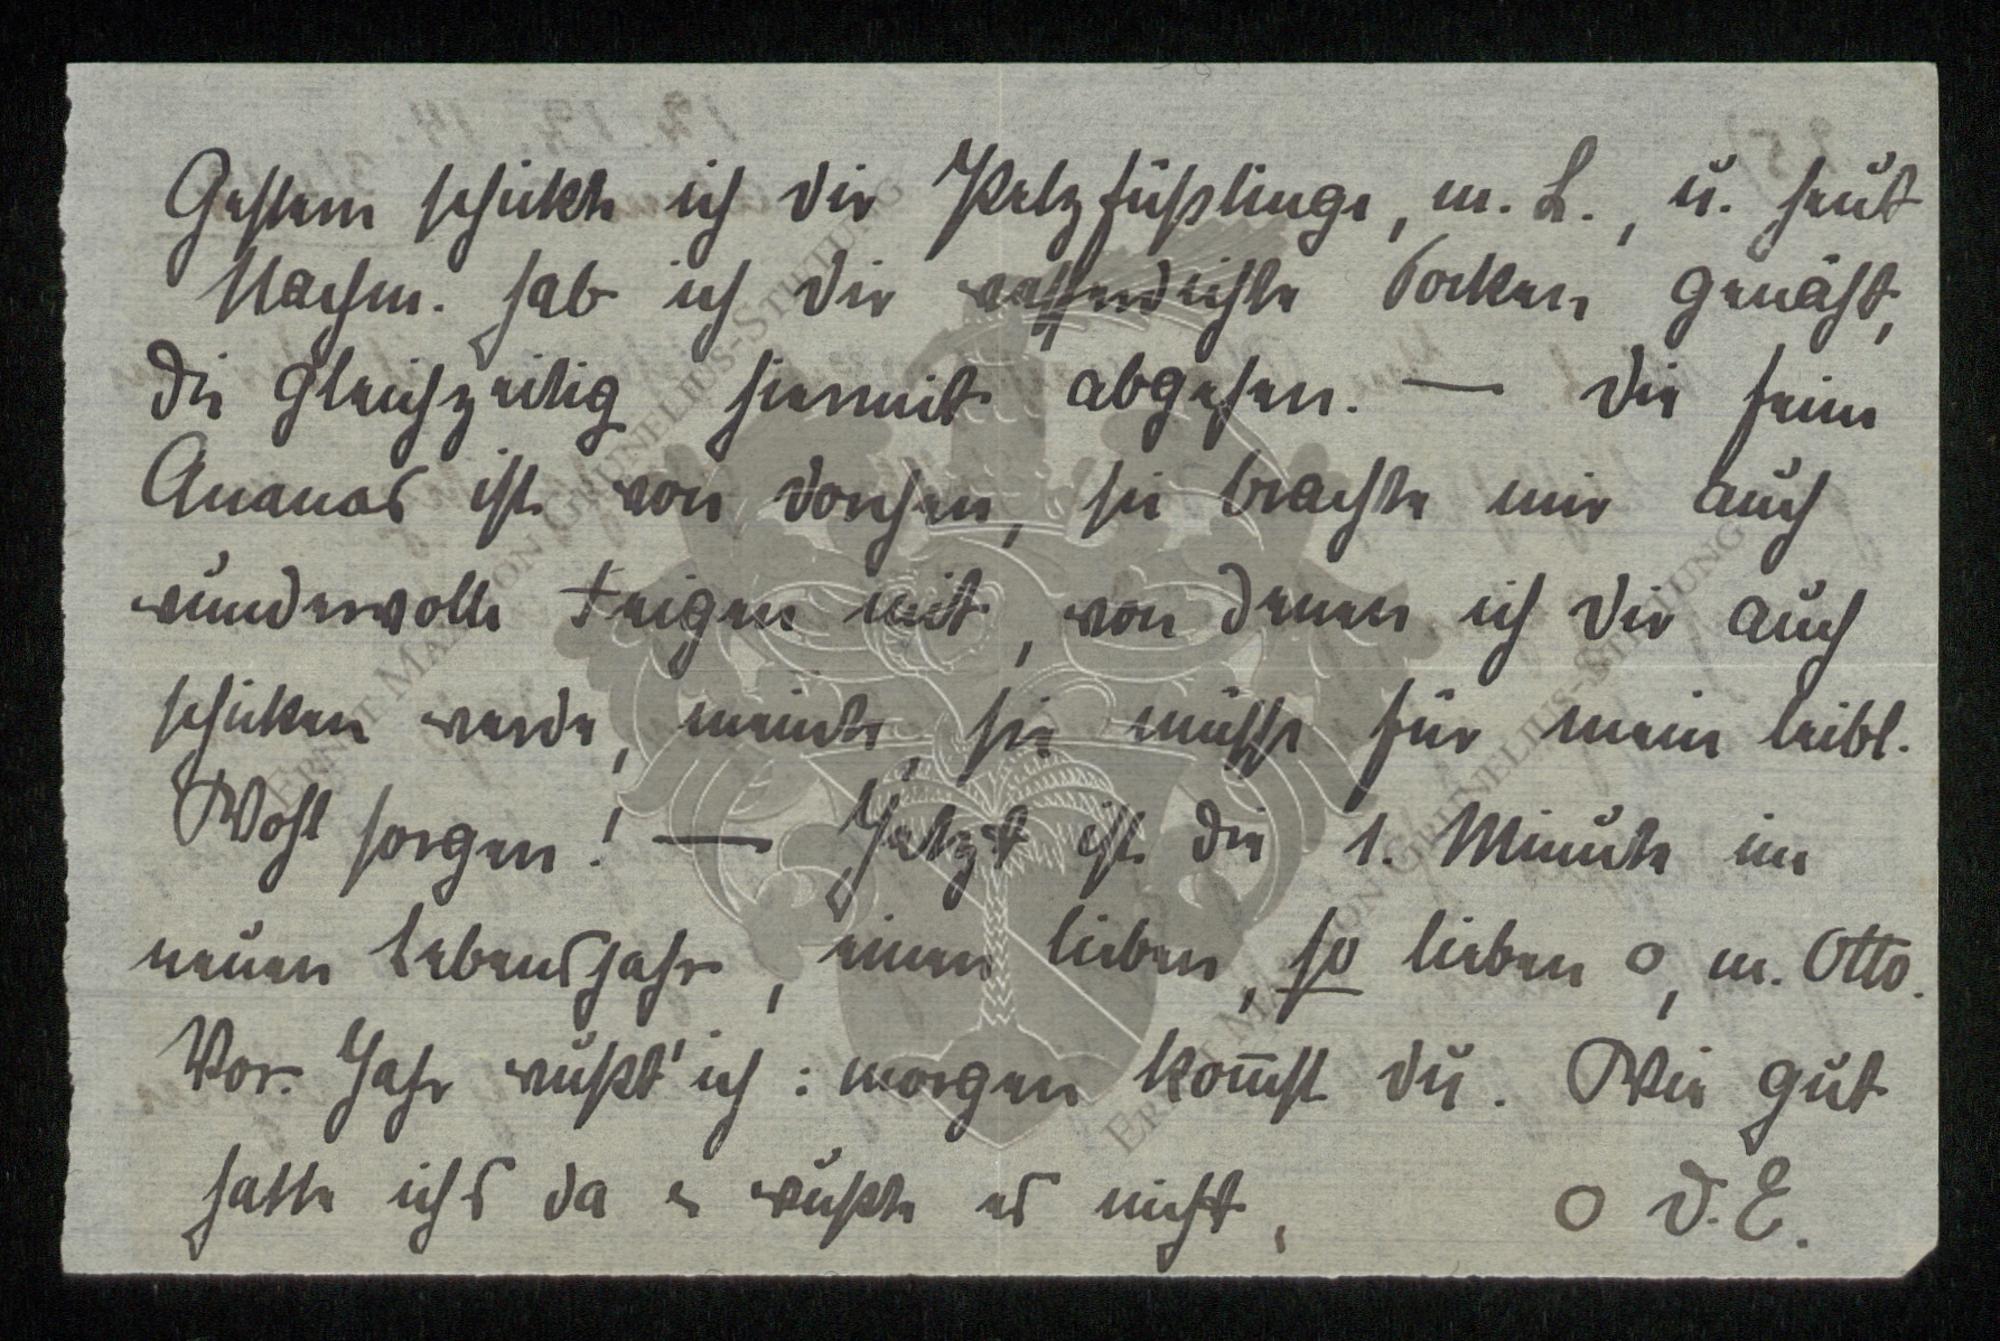 Gestern schickte ich dir Pelzfüßlinge, m. L., u. heut
Nachm. hab ich dir wasserdichte Socken genäht,
die gleichzeitig hiermit abgehen. — Die feine
Ananas ist von Dorchen, sie brachte mir auch
wundervolle Feigen mit, von denen ich dir auch
schicken werde, meinte, sie müsse für mein leibl.
Wohl sorgen! — Jetzt ist die 1. Minute im
neuen Lebensjahr, einen lieben, so lieben o, m. Otto.
Vor. Jahr wußt' ich: morgen kom̅st du. Wie gut
hatte ichs da & wußte es nicht,
o D. E.
ERNST MAX VON GRUNELIUS-STIFTUNG
ERNST MAX VON GRUNELIUS-STIFTUNG